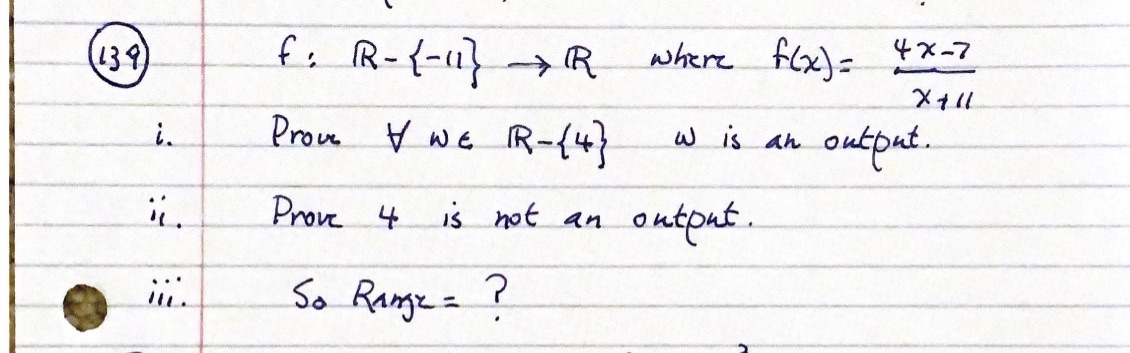 139 f : ℝ-{-11} → ℝ where f(x) = (4x-7)/(x+11)
i. Prove ∀ w ∈ ℝ-{4} w is an output.
ii. Prove 4 is not an output.
iii. So Range = ?